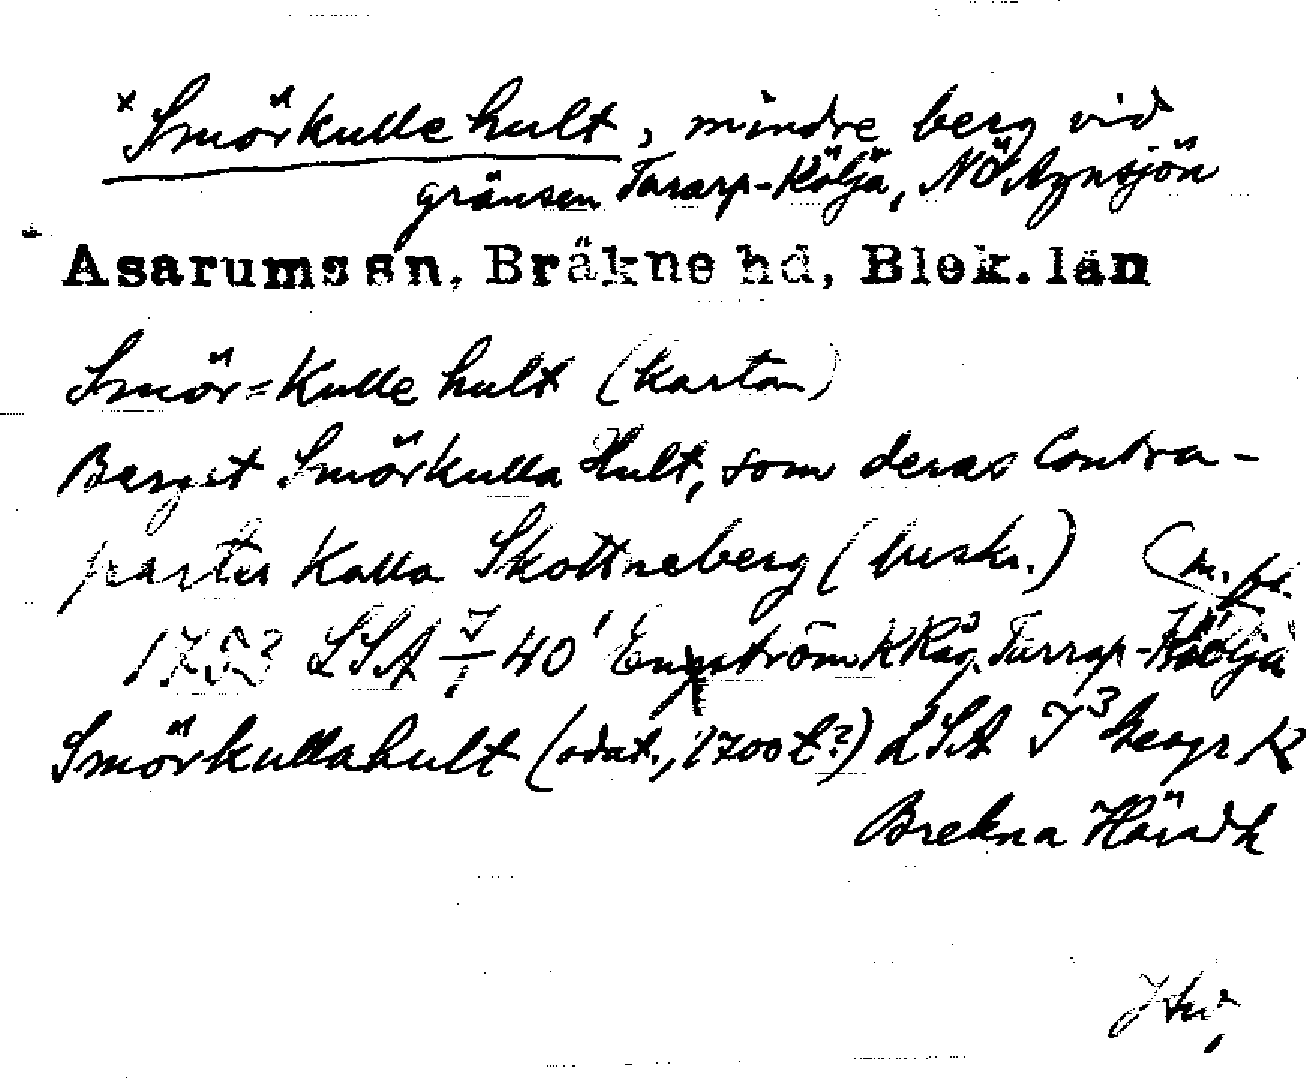 × Smörkulle hult, mindre berg vid
gränsen Tararp-Kölja, NÖ Aznsjön
Asarums sn, Bräkne hd, Blek. län
Smör=Kulle hult (kartan)
Berget Smörkulla Hult, som deras Contra-
parter Kalla Skottneberg (beskr.)
1753 LSA 40' Engström KRåg. Tarrap-Köölja
Smörkullahult (odat., 1700 t?) LSA J³ Geogr K
Brekna Häradh